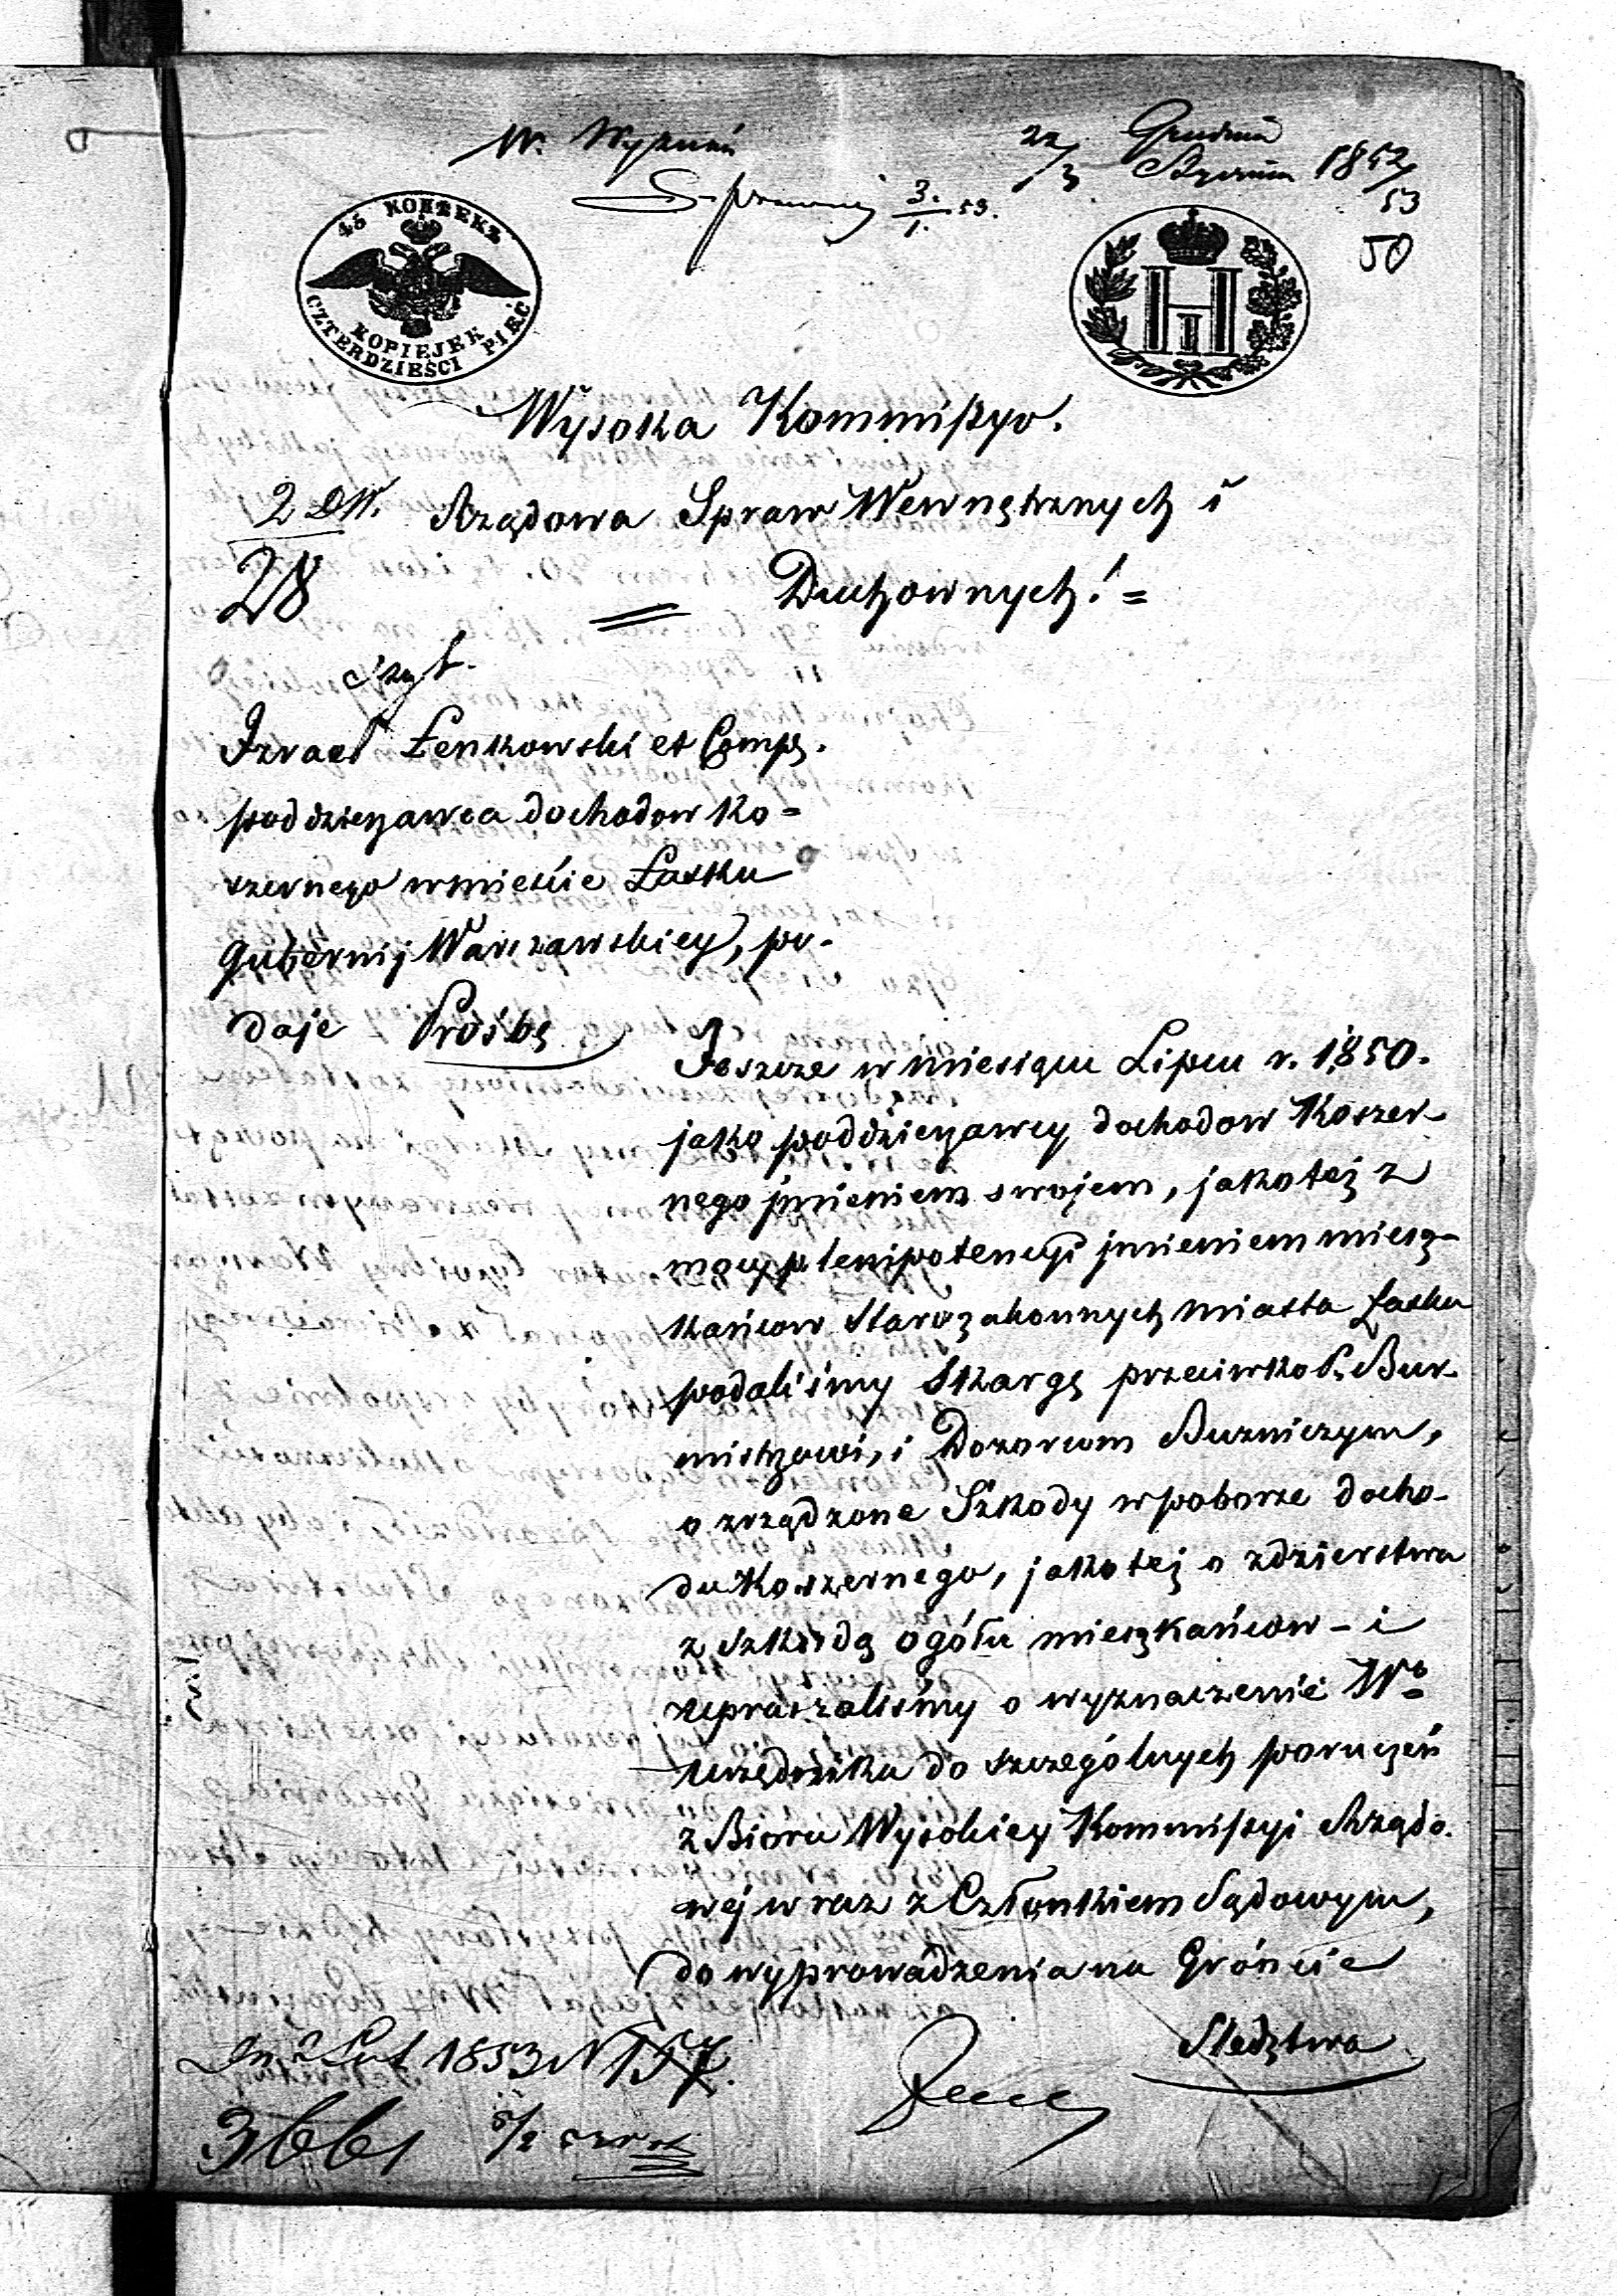 W. Wyznań
22/3 Grudnia Stycznia 1852/53
3./1. 53.
50
45 КОПѢЕКЪ
KOPIEJEK
CZTERDZIEŚCI PIĘĆ
Н I
Wysoka Kommissyo.
2 DW. Rządowa Spraw Wewnętrznych i
28
Duchownych! =
Izrael Łenkowski et Comp.
poddzierzawca dochodow ko-
szernego w mieście Łasku
Gubernij Warszawskiey, po-
daje Prośbę
Jeszcze w miesiącu Lipcu r. 1850.
jako poddzierzawcy dochodow Koszer-
nego jmieniem swojem, jakoteż z
mocy plenipotencyi jmieniem miesz-
kańcow Starozakonnych miasta Łasku
podaliśmy Skargę przeciwko P. Bur-
mistrzowi, i Dozorcom Buzniczym,
o zrządzone Szkody w poborze docho-
du Koszernego, jakoteż o zdzierstwa
z szkodą ogółu mieszkańcow - i
upraszaliśmy o wyznaczenie Wo
urzędnika do szczególnych poruczeń
z Bióra Wysokiey Kommissyi Rządo-
wéj wraz z Członkiem Sądowym,
do wyprowadzenia na Gróncie
Sledztwa
Lut 1853 N 157.
3661